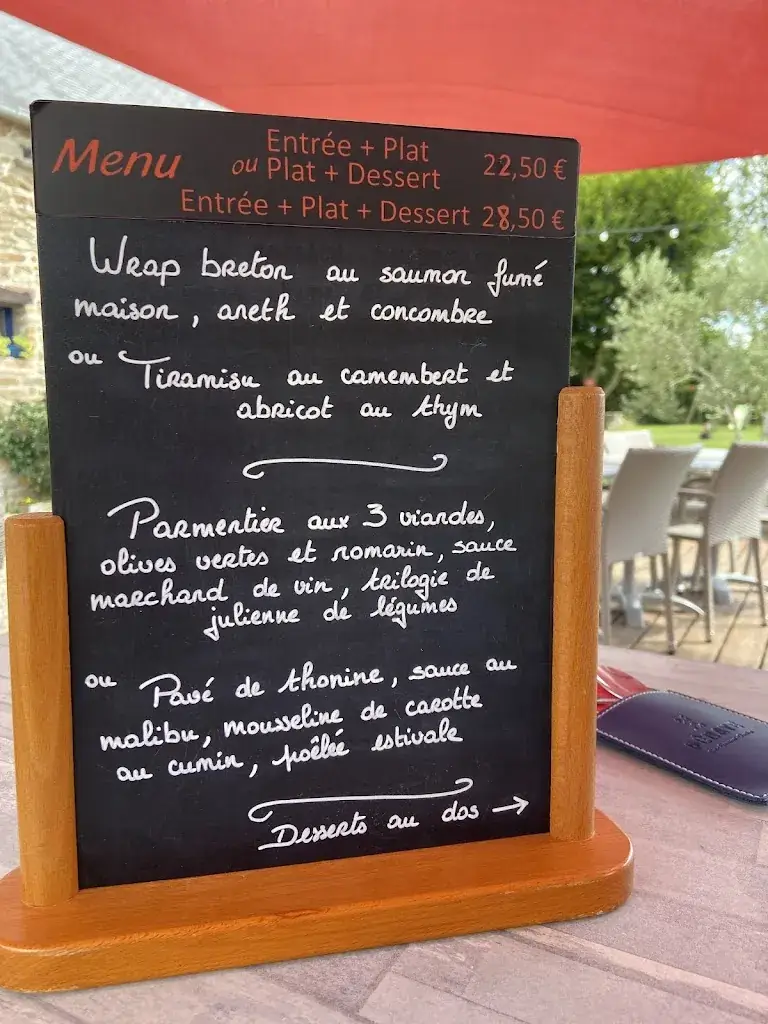 Menu
Entrée + Plat
ou Plat + Dessert 22,50 €
Entrée + Plat + Dessert 28,50 €
Wrap breton au saumon fumé
maison, aneth et concombre
ou Tiramisu au camembert et
abricot au thym
Parmentier aux 3 viandes,
olives vertes et romarin, sauce
marchand de vin, trilogie de
julienne de légumes
ou Pavé de thonine, sauce au
malibu, mousseline de carotte
au cumin, poêlée estivale
Desserts au dos →